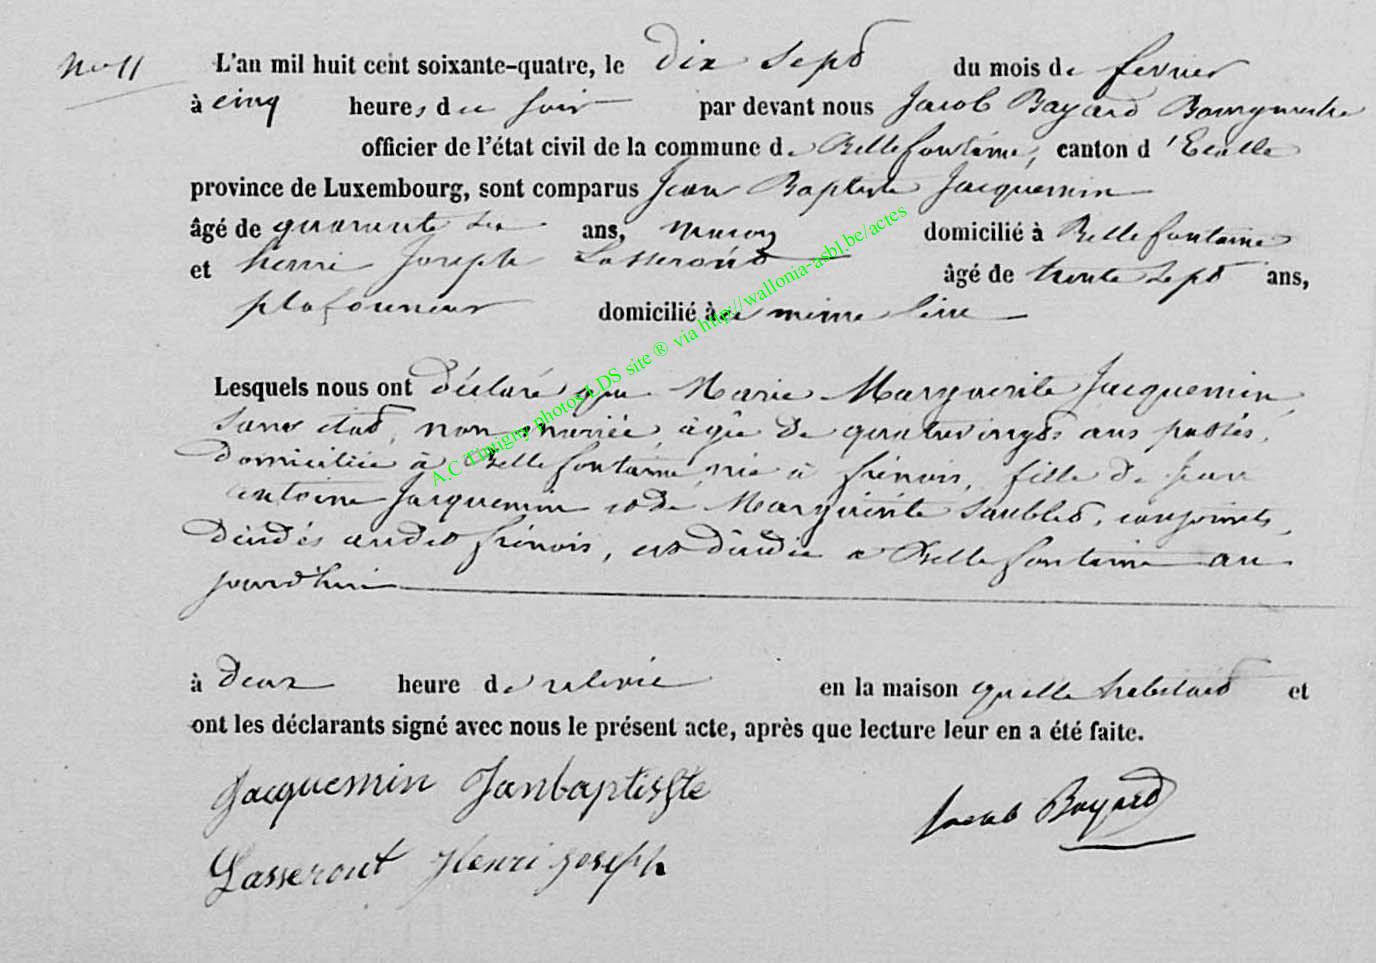 No 11
L'an mil huit cent soixante-quatre, le dix sept du mois de fevrier
à cinq heures du soir par devant nous Jacob Bayard Bourgmestre
officier de l'état civil de la commune de Bellefontaine, canton d'Etalle
province de Luxembourg, sont comparus Jean Baptiste Jacquemin
âgé de quarante six ans, maçon domicilié à Bellefontaine
et henri Joseph Lasseront âgé de trente sept ans,
plafonneur domicilié à ce même lieu
Lesquels nous ont déclaré que Marie Marguerite Jacquemin,
sans état, non mariée, âgée de quatrevingts ans passés,
domiciliée à Bellefontaine, née à frénois, fille de Jean
antoine Jacquemin et de Marguerite conjoints,
décédés audit frénois, est décédée à Bellefontaine au
jourd'hui
à deux heure de relevée en la maison qu'elle habitait et
ont les déclarants signé avec nous le présent acte, après que lecture leur en a été faite.
Jacquemin Janbaptisste
Jacob Bayard
Lasseront Henri joseph
A.C Tintigny photos LDS site ® via http://wallonia-asbl.be/actes